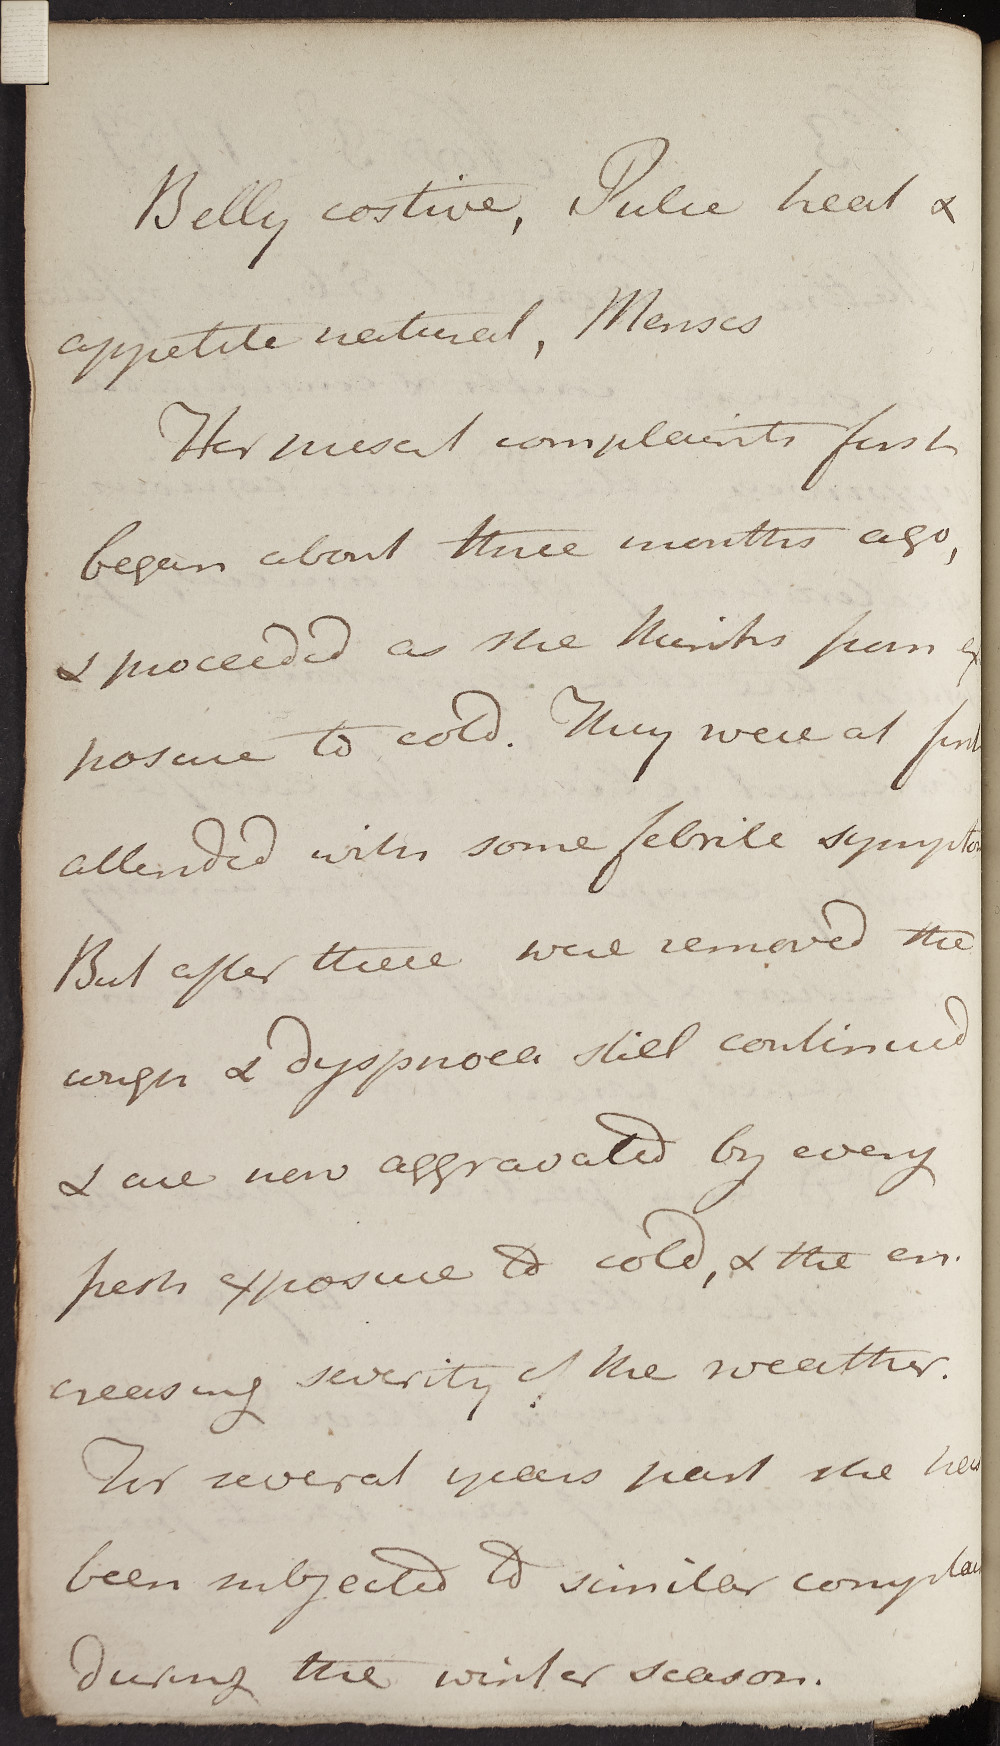 Belly costive, Pulse heat &
appetite natural, Menses
Her present complaints first
began about three months ago,
& proceeded as she thinks from ex
posure to cold. They were at first
attended with some febrile symptom
But after these were removed the
cough & dyspnoea still continued
& are now aggravated by every
fresh exposure to cold, & the en-
creasing severity of the weather.
For several years past she has
been subjected to similar complain
during the winter season.